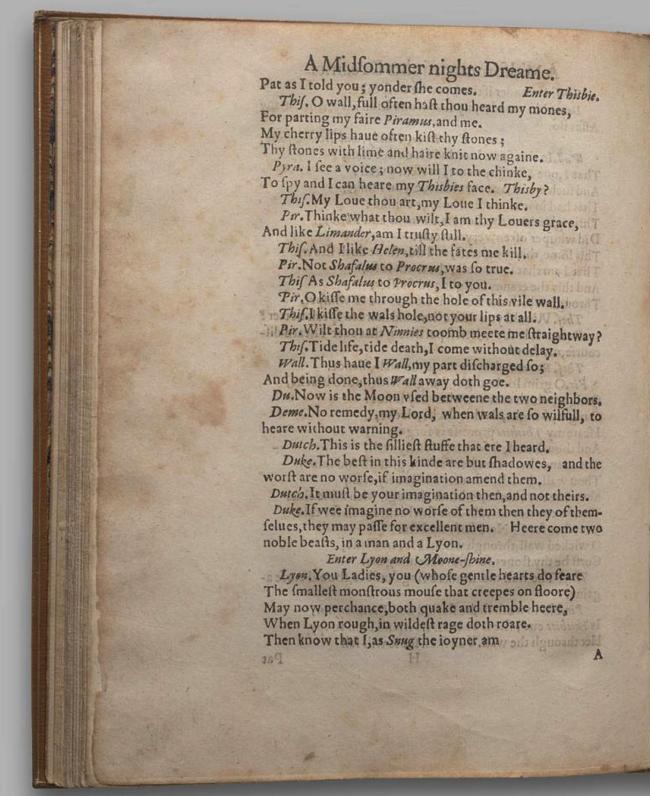 A Midſommer nights Dreame.
Pat as I told you; yonder ſhe comes. Enter Thisbie.
Thiſ. O wall, full often haſt thou heard my mones,
For parting my faire Piramus, and me.
My cherry lips haue often kiſt thy ſtones;
Thy ſtones with lime and haire knit now againe.
Pyra. I ſee a voice; now will I to the chinke,
To ſpy and I can heare my Thisbies face. Thisby?
Thiſ. My Loue thou art, my Loue I thinke.
Pir. Thinke what thou wilt, I am thy Louers grace,
And like Limander, am I truſty ſtill.
Thiſ. And I like Helen, till the fates me kill.
Pir. Not Shafalus to Procrus, was ſo true.
Thiſ As Shafalus to Procrus, I to you.
Pir. O kiſſe me through the hole of this vile wall.
Thiſ. I kiſſe the wals hole, not your lips at all.
Pir. Wilt thou at Ninnies toomb meete me ſtraightway?
Thiſ. Tide life, tide death, I come without delay.
Wall. Thus haue I Wall, my part diſcharged ſo;
And being done, thus Wall away doth goe.
Du. Now is the Moon vſed betweene the two neighbors.
Deme. No remedy my Lord, when wals are ſo wilfull, to
heare without warning.
Dutch. This is the ſillieſt ſtuffe that ere I heard.
Duke. The beſt in this kinde are but ſhadowes, and the
worſt are no worſe, if imagination amend them.
Dutch. It muſt be your imagination then, and not theirs.
Duke. If wee imagine no worſe of them then they of them-
ſelues, they may paſſe for excellent men. Heere come two
noble beaſts, in a man and a Lyon.
Enter Lyon and Moone-ſhine.
Lyon. You Ladies, you (whoſe gentle hearts do feare
The ſmalleſt monſtrous mouſe that creepes on floore)
May now perchance, both quake and tremble heere,
When Lyon rough, in wildeſt rage doth roare.
Then know that I, as Snug the ioyner am
A